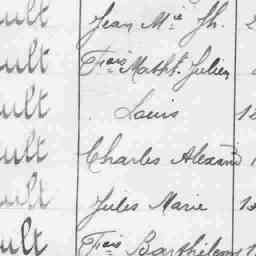 ult Jean Mie Jh.
ult Frois Matht. Julien
ult Louis 12
ult Charles Alexand
ult Jules Marie 12
ult Frois Barthélemy